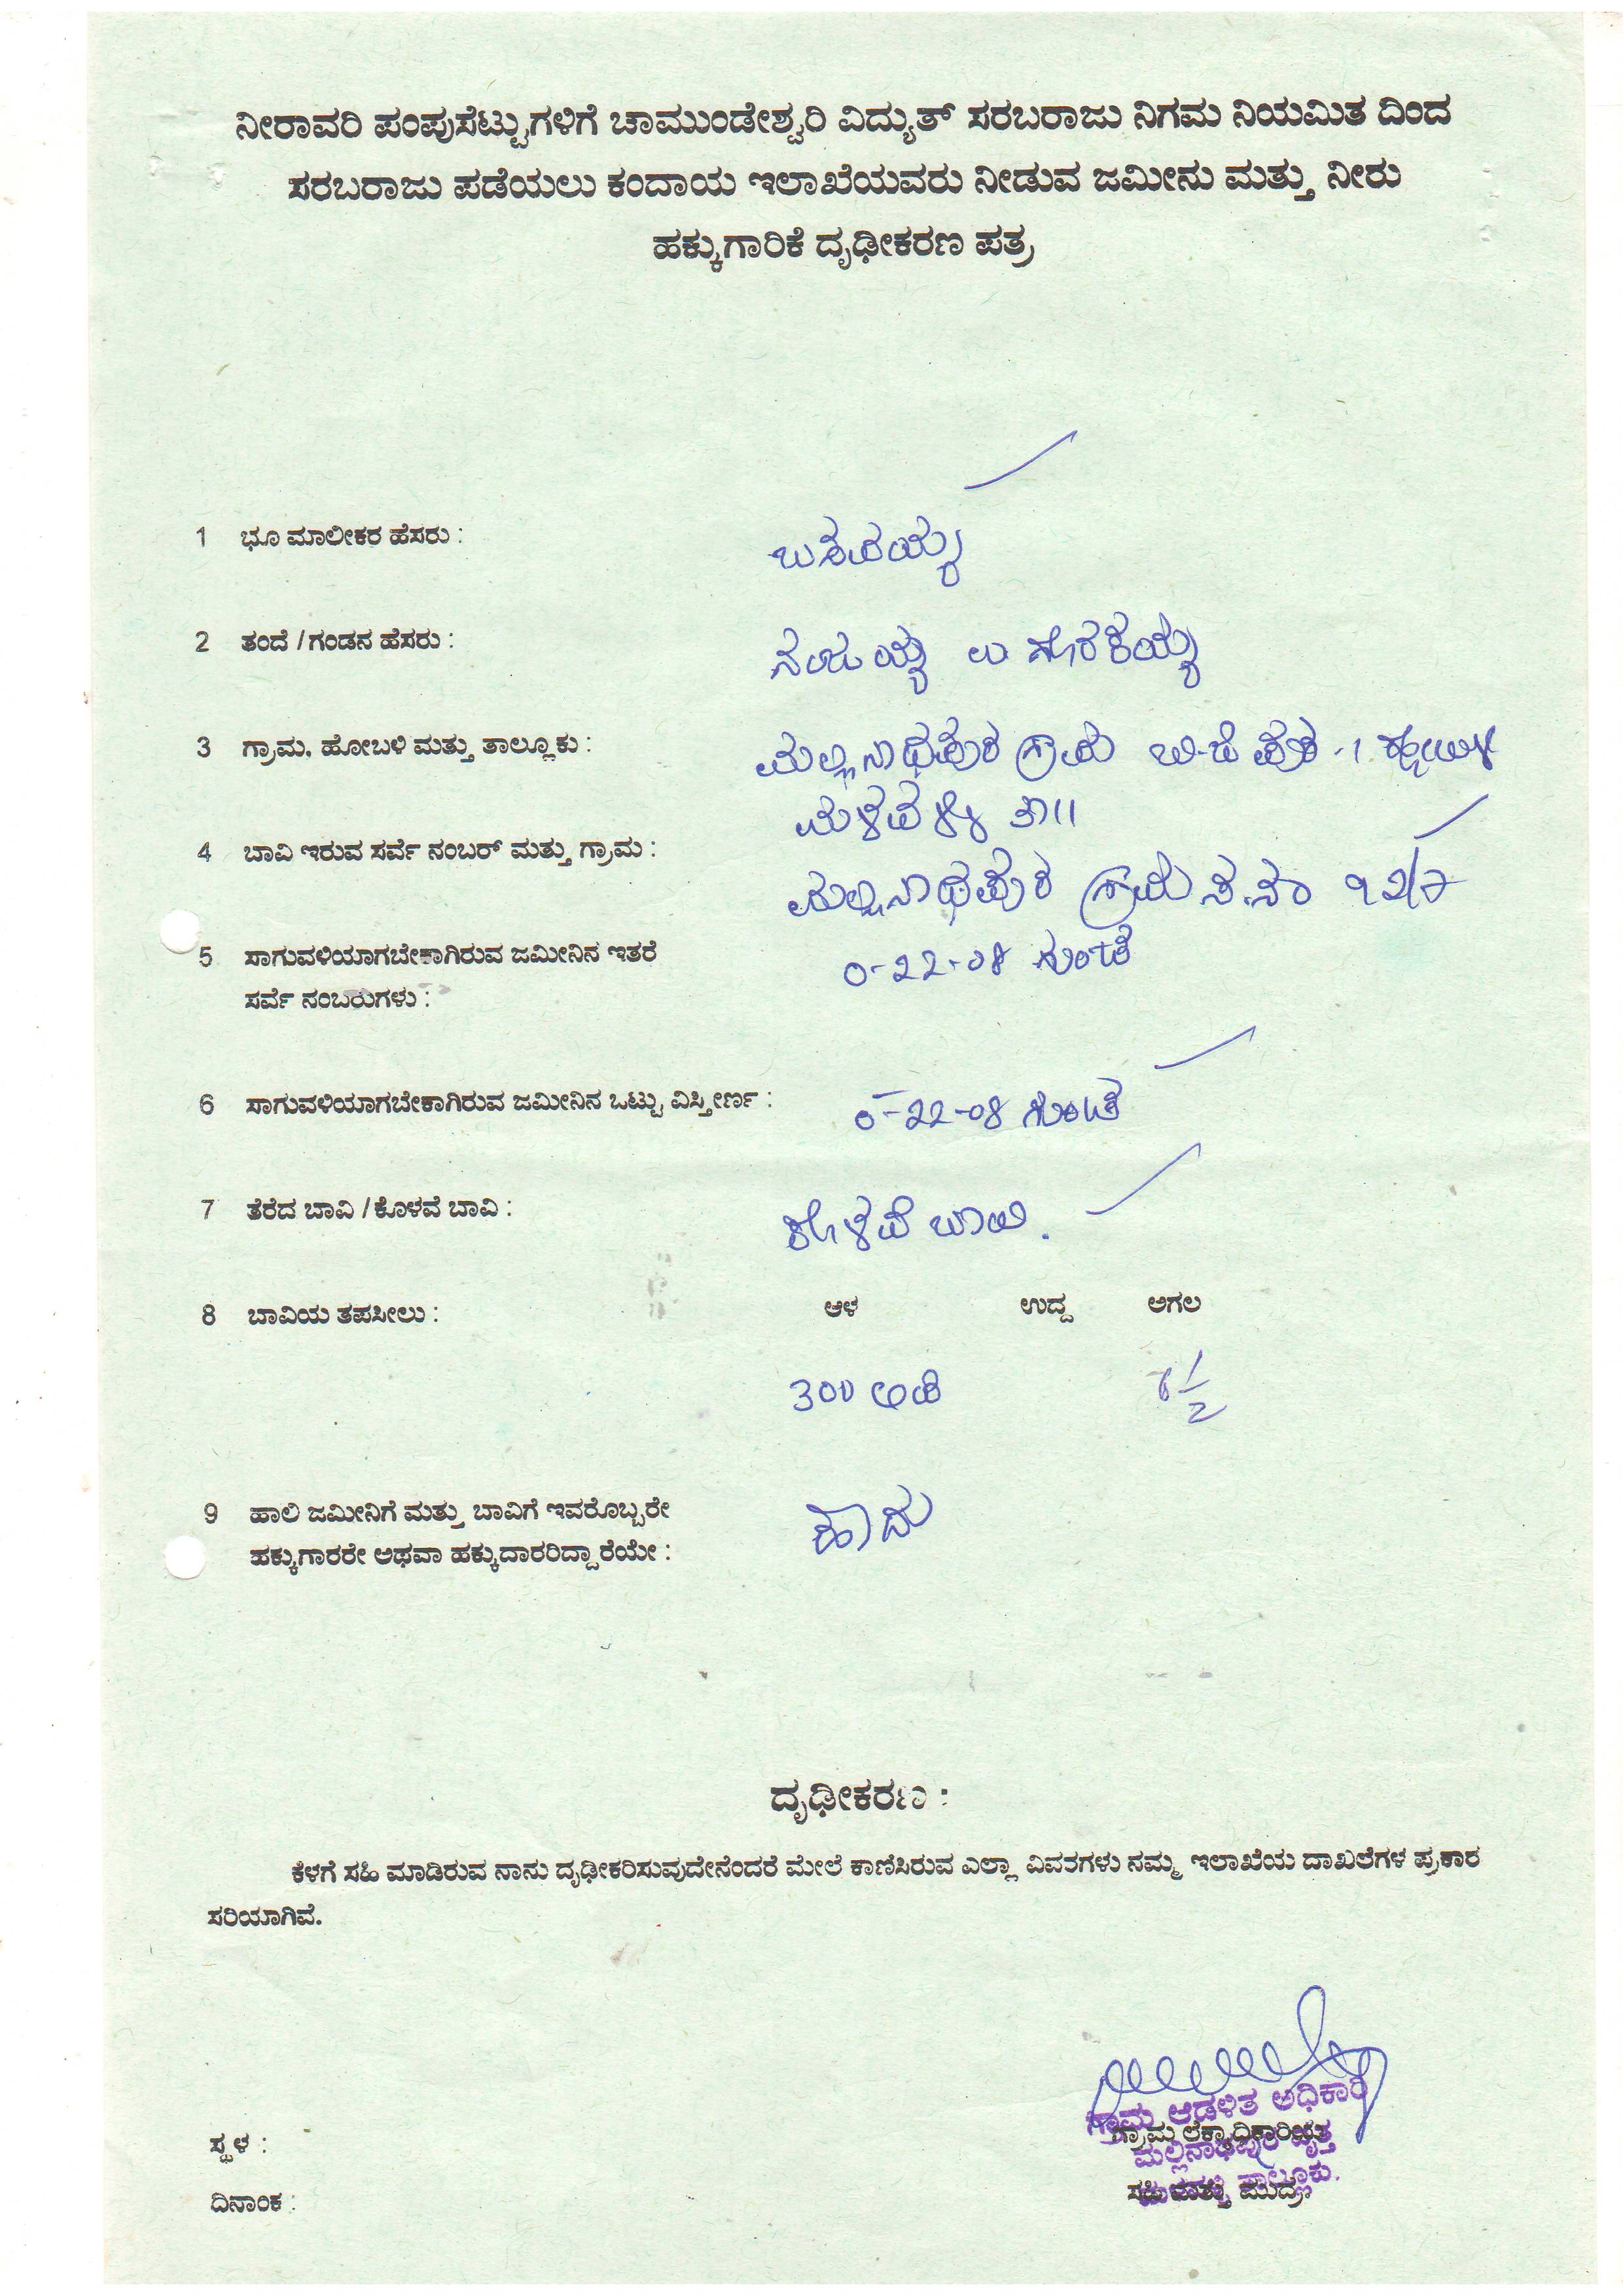 ನೀರಾವರಿ ಪಂಪುಸೆಟ್ಟುಗಳಿಗೆ ಚಾಮುಂಡೇಶ್ವರಿ ವಿದ್ಯುತ್ ಸರಬರಾಜು ನಿಗಮ ನಿಯಮಿತ ದಿಂದ
ಸರಬರಾಜು ಪಡೆಯಲು ಕಂದಾಯ ಇಲಾಖೆಯವರು ನೀಡುವ ಜಮೀನು ಮತ್ತು ನೀರು
ಹಕ್ಕುಗಾರಿಕೆ ದೃಢೀಕರಣ ಪತ್ರ
1 ಭೂ ಮಾಲೀಕರ ಹೆಸರು : ಬಸವಯ್ಯ
2 ತಂದೆ / ಗಂಡನ ಹೆಸರು : ನಂಜಯ್ಯ
3 ಗ್ರಾಮ, ಹೋಬಳಿ ಮತ್ತು ತಾಲ್ಲೂಕು : ಮಲ್ಲಿನಾಥಪುರ ಗ್ರಾಮ ಬಿ.ಜಿ ಪುರ
ಮಳವಳ್ಳಿ ತಾ||
4 ಬಾವಿ ಇರುವ ಸರ್ವೆ ನಂಬರ್ ಮತ್ತು ಗ್ರಾಮ :
ಮಲ್ಲಿನಾಥಪುರ ಗ್ರಾಮ ಸ.ನಂ 92/7
5 ಸಾಗುವಳಿಯಾಗಬೇಕಾಗಿರುವ ಜಮೀನಿನ ಇತರೆ 0-22-08 ಗುಂಟೆ
ಸರ್ವೆ ನಂಬರುಗಳು :
6 ಸಾಗುವಳಿಯಾಗಬೇಕಾಗಿರುವ ಜಮೀನಿನ ಒಟ್ಟು ವಿಸ್ತೀರ್ಣ : 0-22-08 ಗುಂಟೆ
7 ತೆರೆದ ಬಾವಿ / ಕೊಳವೆ ಬಾವಿ : ಕೊಳವೆ ಬಾವಿ.
8 ಬಾವಿಯ ತಪಸೀಲು : ಆಳ ಉದ್ದ ಅಗಲ
300 ಅಡಿ 6 1/2
9 ಹಾಲಿ ಜಮೀನಿಗೆ ಮತ್ತು ಬಾವಿಗೆ ಇವರೊಬ್ಬರೇ ಹೌದು
ಹಕ್ಕುಗಾರರೇ ಅಥವಾ ಹಕ್ಕುದಾರರಿದ್ದಾರೆಯೇ :
ದೃಢೀಕರಣ :
ಕೆಳಗೆ ಸಹಿ ಮಾಡಿರುವ ನಾನು ದೃಢೀಕರಿಸುವುದೇನೆಂದರೆ ಮೇಲೆ ಕಾಣಿಸಿರುವ ಎಲ್ಲಾ ವಿವರಗಳು ನಮ್ಮ ಇಲಾಖೆಯ ದಾಖಲೆಗಳ ಪ್ರಕಾರ
ಸರಿಯಾಗಿವೆ.
ಗ್ರಾಮ ಆಡಳಿತ ಅಧಿಕಾರಿ
ಸ್ಥಳ : ಗ್ರಾಮ ಲೆಕ್ಕಾಧಿಕಾರಿಯ
ಮಲ್ಲಿನಾಥಪುರ ವೃತ್ತ
ತಾಲ್ಲೂಕು.
ದಿನಾಂಕ : ಸಹಿ ಮತ್ತು ಮುದ್ರೆ